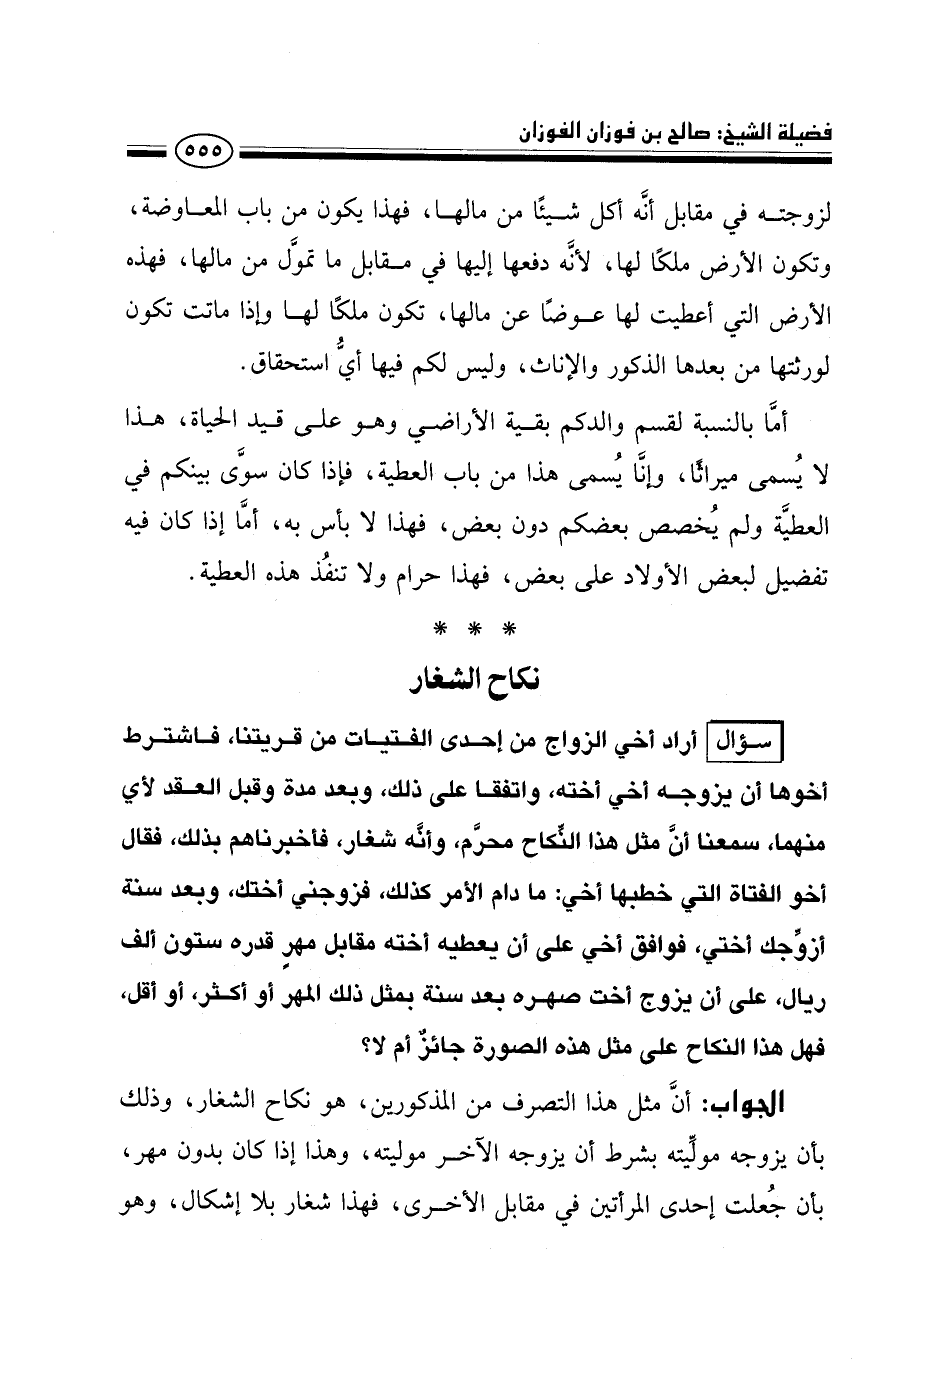 فضيلة الشيخ: صالح بن فوزان الفوزان
٥٥٥
لزوجته في مقابل أنَّه أكل شيئًا من مالها، فهذا يكون من باب المعاوضة،
وتكون الأرض ملكًا لها، لأنَّه دفعها إليها في مقابل ما تموَّل من مالها، فهذه
الأرض التي أعطيت لها عوضًا عن مالها، تكون ملكًا لها وإذا ماتت تكون
لورثتها من بعدها الذكور والإناث، وليس لكم فيها أيُّ استحقاق.
أمَّا بالنسبة لقسم والدكم بقية الأراضي وهو على قيد الحياة، هذا
لا يُسمى ميراثًا، وإنَّما يُسمى هذا من باب العطية، فإذا كان سوَّى بينكم في
العطيَّة ولم يُخصص بعضكم دون بعض، فهذا لا بأس به، أمَّا إذا كان فيه
تفضيل لبعض الأولاد على بعض، فهذا حرام ولا تنفُذ هذه العطية.
* * *
نكاح الشغار
سؤال أراد أخي الزواج من إحدى الفتيات من قريتنا، فاشترط
أخوها أن يزوجه أخي أخته، واتفقا على ذلك، وبعد مدة وقبل العقد لأي
منهما، سمعنا أنَّ مثل هذا النِّكاح محرَّم، وأنَّه شغار، فأخبرناهم بذلك، فقال
أخو الفتاة التي خطبها أخي: ما دام الأمر كذلك، فزوجني أختك، وبعد سنة
أزوِّجك أختي، فوافق أخي على أن يعطيه أخته مقابل مهرٍ قدره ستون ألف
ريال، على أن يزوج أخت صهره بعد سنة بمثل ذلك المهر أو أكثر، أو أقل،
فهل هذا النكاح على مثل هذه الصورة جائزٌ أم لا؟
الجواب: أنَّ مثل هذا التصرف من المذكورين، هو نكاح الشغار، وذلك
بأن يزوجه مولِّيته بشرط أن يزوجه الآخر موليته، وهذا إذا كان بدون مهر،
بأن جُعلت إحدى المرأتين في مقابل الأخرى، فهذا شغار بلا إشكال، وهو